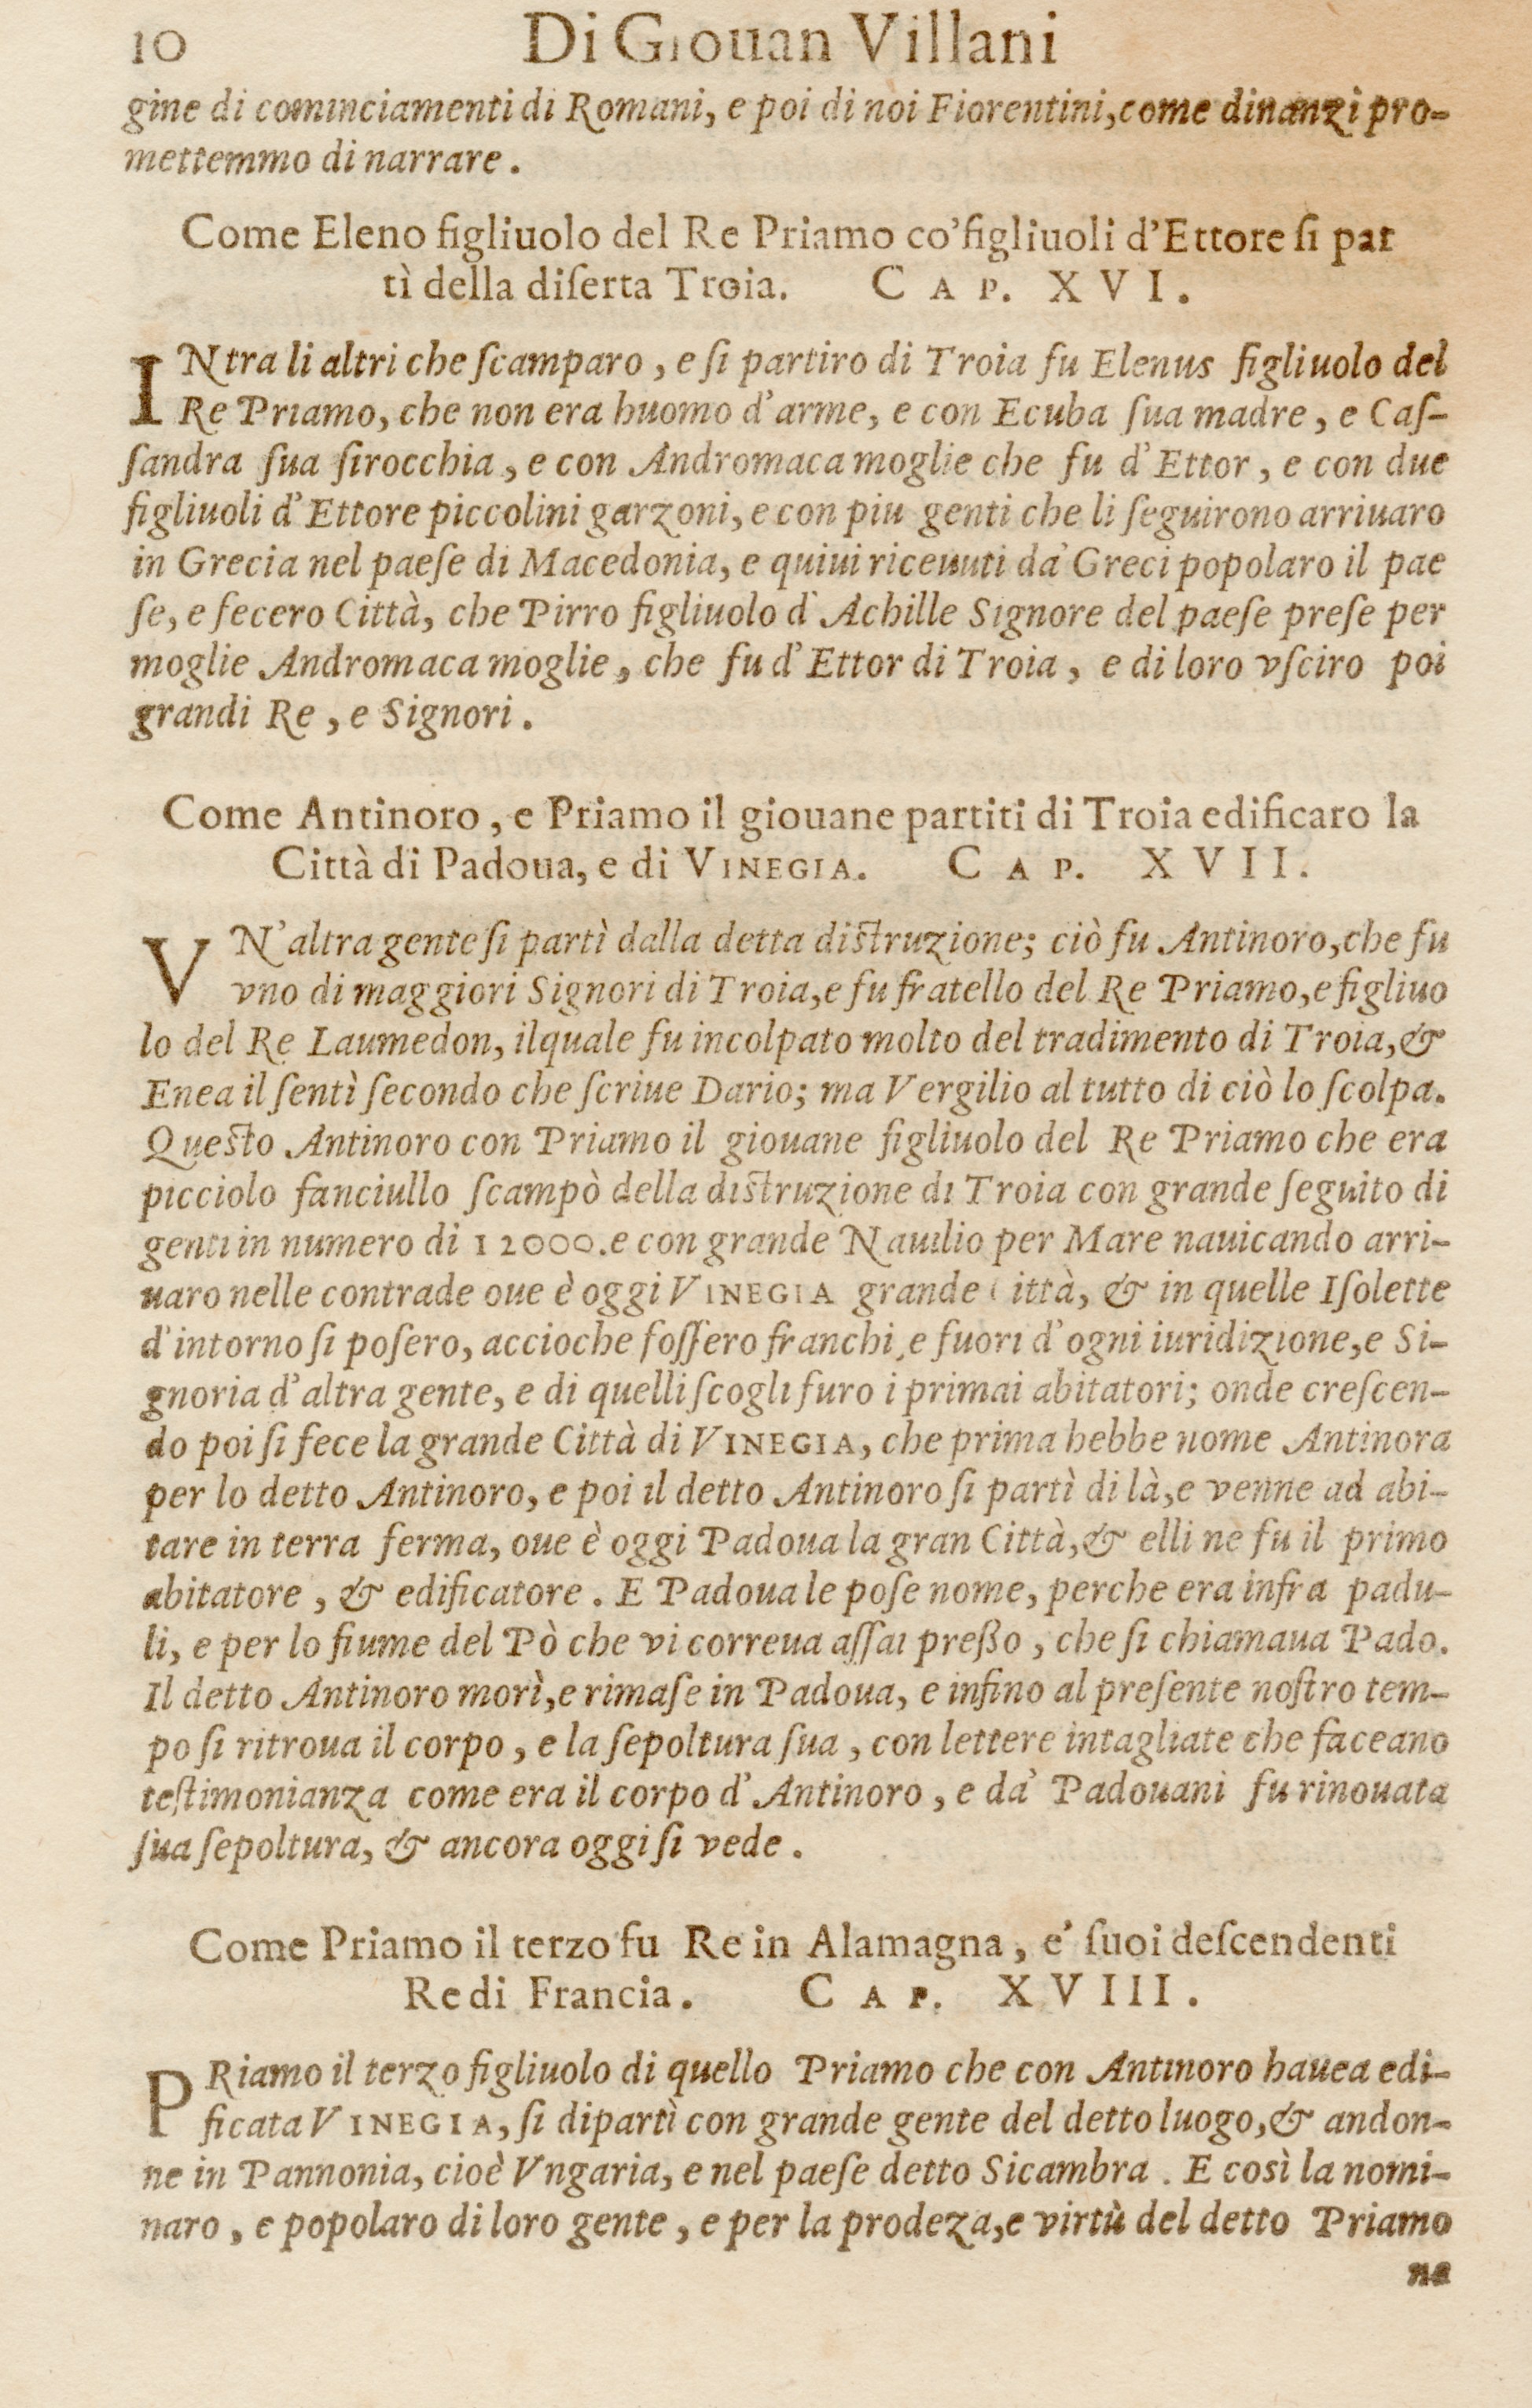 10 Di Giouan Villani
gine di cominciamenti di Romani, e poi di noi Fiorentini, come dinanzi pro-
mettemmo di narrare.
Come Eleno figliuolo del Re Priamo co'figliuoli d'Ettore ſi par
tì della diſerta Troia. CAP. XVI.
INtra li altri che ſcamparo, e ſi partiro di Troia fu Elenus figliuolo del
Re Priamo, che non era huomo d'arme, e con Ecuba ſua madre, e Caſ-
ſandra ſua ſirocchia, e con Andromaca moglie che fu d'Ettor, e con due
figliuoli d'Ettore piccolini garzoni, e con piu genti che li ſeguirono arriuaro
in Grecia nel paeſe di Macedonia, e quiui riceuuti da' Greci popolaro il pae
ſe, e fecero Città, che Pirro figliuolo d'Achille Signore del paeſe preſe per
moglie Andromaca moglie, che fu d'Ettor di Troia, e di loro vſciro poi
grandi Re, e Signori.
Come Antinoro, e Priamo il giouane partiti di Troia edificaro la
Città di Padoua, e di VINEGIA. CAP. XVII.
VN'altra gente ſi partì dalla detta diſtruzione; ciò fu Antinoro, che fu
vno di maggiori Signori di Troia, e fu fratello del Re Priamo, e figliuo
lo del Re Laumedon, ilquale fu incolpato molto del tradimento di Troia, &
Enea il ſentì ſecondo che ſcriue Dario; ma Vergilio al tutto di ciò lo ſcolpa.
Queſto Antinoro con Priamo il giouane figliuolo del Re Priamo che era
picciolo fanciullo ſcampò della diſtruzione di Troia con grande ſeguito di
genti in numero di 12000. e con grande Nauilio per Mare nauicando arri-
uaro nelle contrade oue è oggi VINEGIA grande Città, & in quelle Iſolette
d'intorno ſi poſero, accioche foſſero franchi, e fuori d'ogni iuridizione, e Si-
gnoria d'altra gente, e di quelli ſcogli furo i primai abitatori; onde creſcen-
do poi ſi fece la grande Città di VINEGIA, che prima hebbe nome Antinora
per lo detto Antinoro, e poi il detto Antinoro ſi partì di là, e venne ad abi-
tare in terra ferma, oue è oggi Padoua la gran Città, & elli ne fu il primo
abitatore, & edificatore. E Padoua le poſe nome, perche era infra padu-
li, e per lo fiume del Pò che vi correua aſſai preßo, che ſi chiamaua Pado.
Il detto Antinoro morì, e rimaſe in Padoua, e infino al preſente noſtro tem-
po ſi ritroua il corpo, e la ſepoltura ſua, con lettere intagliate che faceano
teſtimonianza come era il corpo d'Antinoro, e da' Padouani fu rinouata
ſua ſepoltura, & ancora oggi ſi vede.
Come Priamo il terzo fu Re in Alamagna, e' ſuoi deſcendenti
Re di Francia. CAP. XVIII.
PRiamo il terzo figliuolo di quello Priamo che con Antinoro hauea edi-
ficata VINEGIA, ſi dipartì con grande gente del detto luogo, & andon-
ne in Pannonia, cioè Vngaria, e nel paeſe detto Sicambra. E così la nomi-
naro, e popolaro di loro gente, e per la prodeza, e virtù del detto Priamo
na